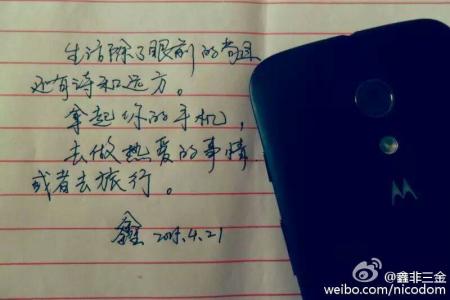 生活除了眼前的苟且
还有诗和远方。
拿起你的手机，
去做热爱的事情
或者去旅行。
鑫 2015.4.21
@鑫非三金
weibo.com/nicodom